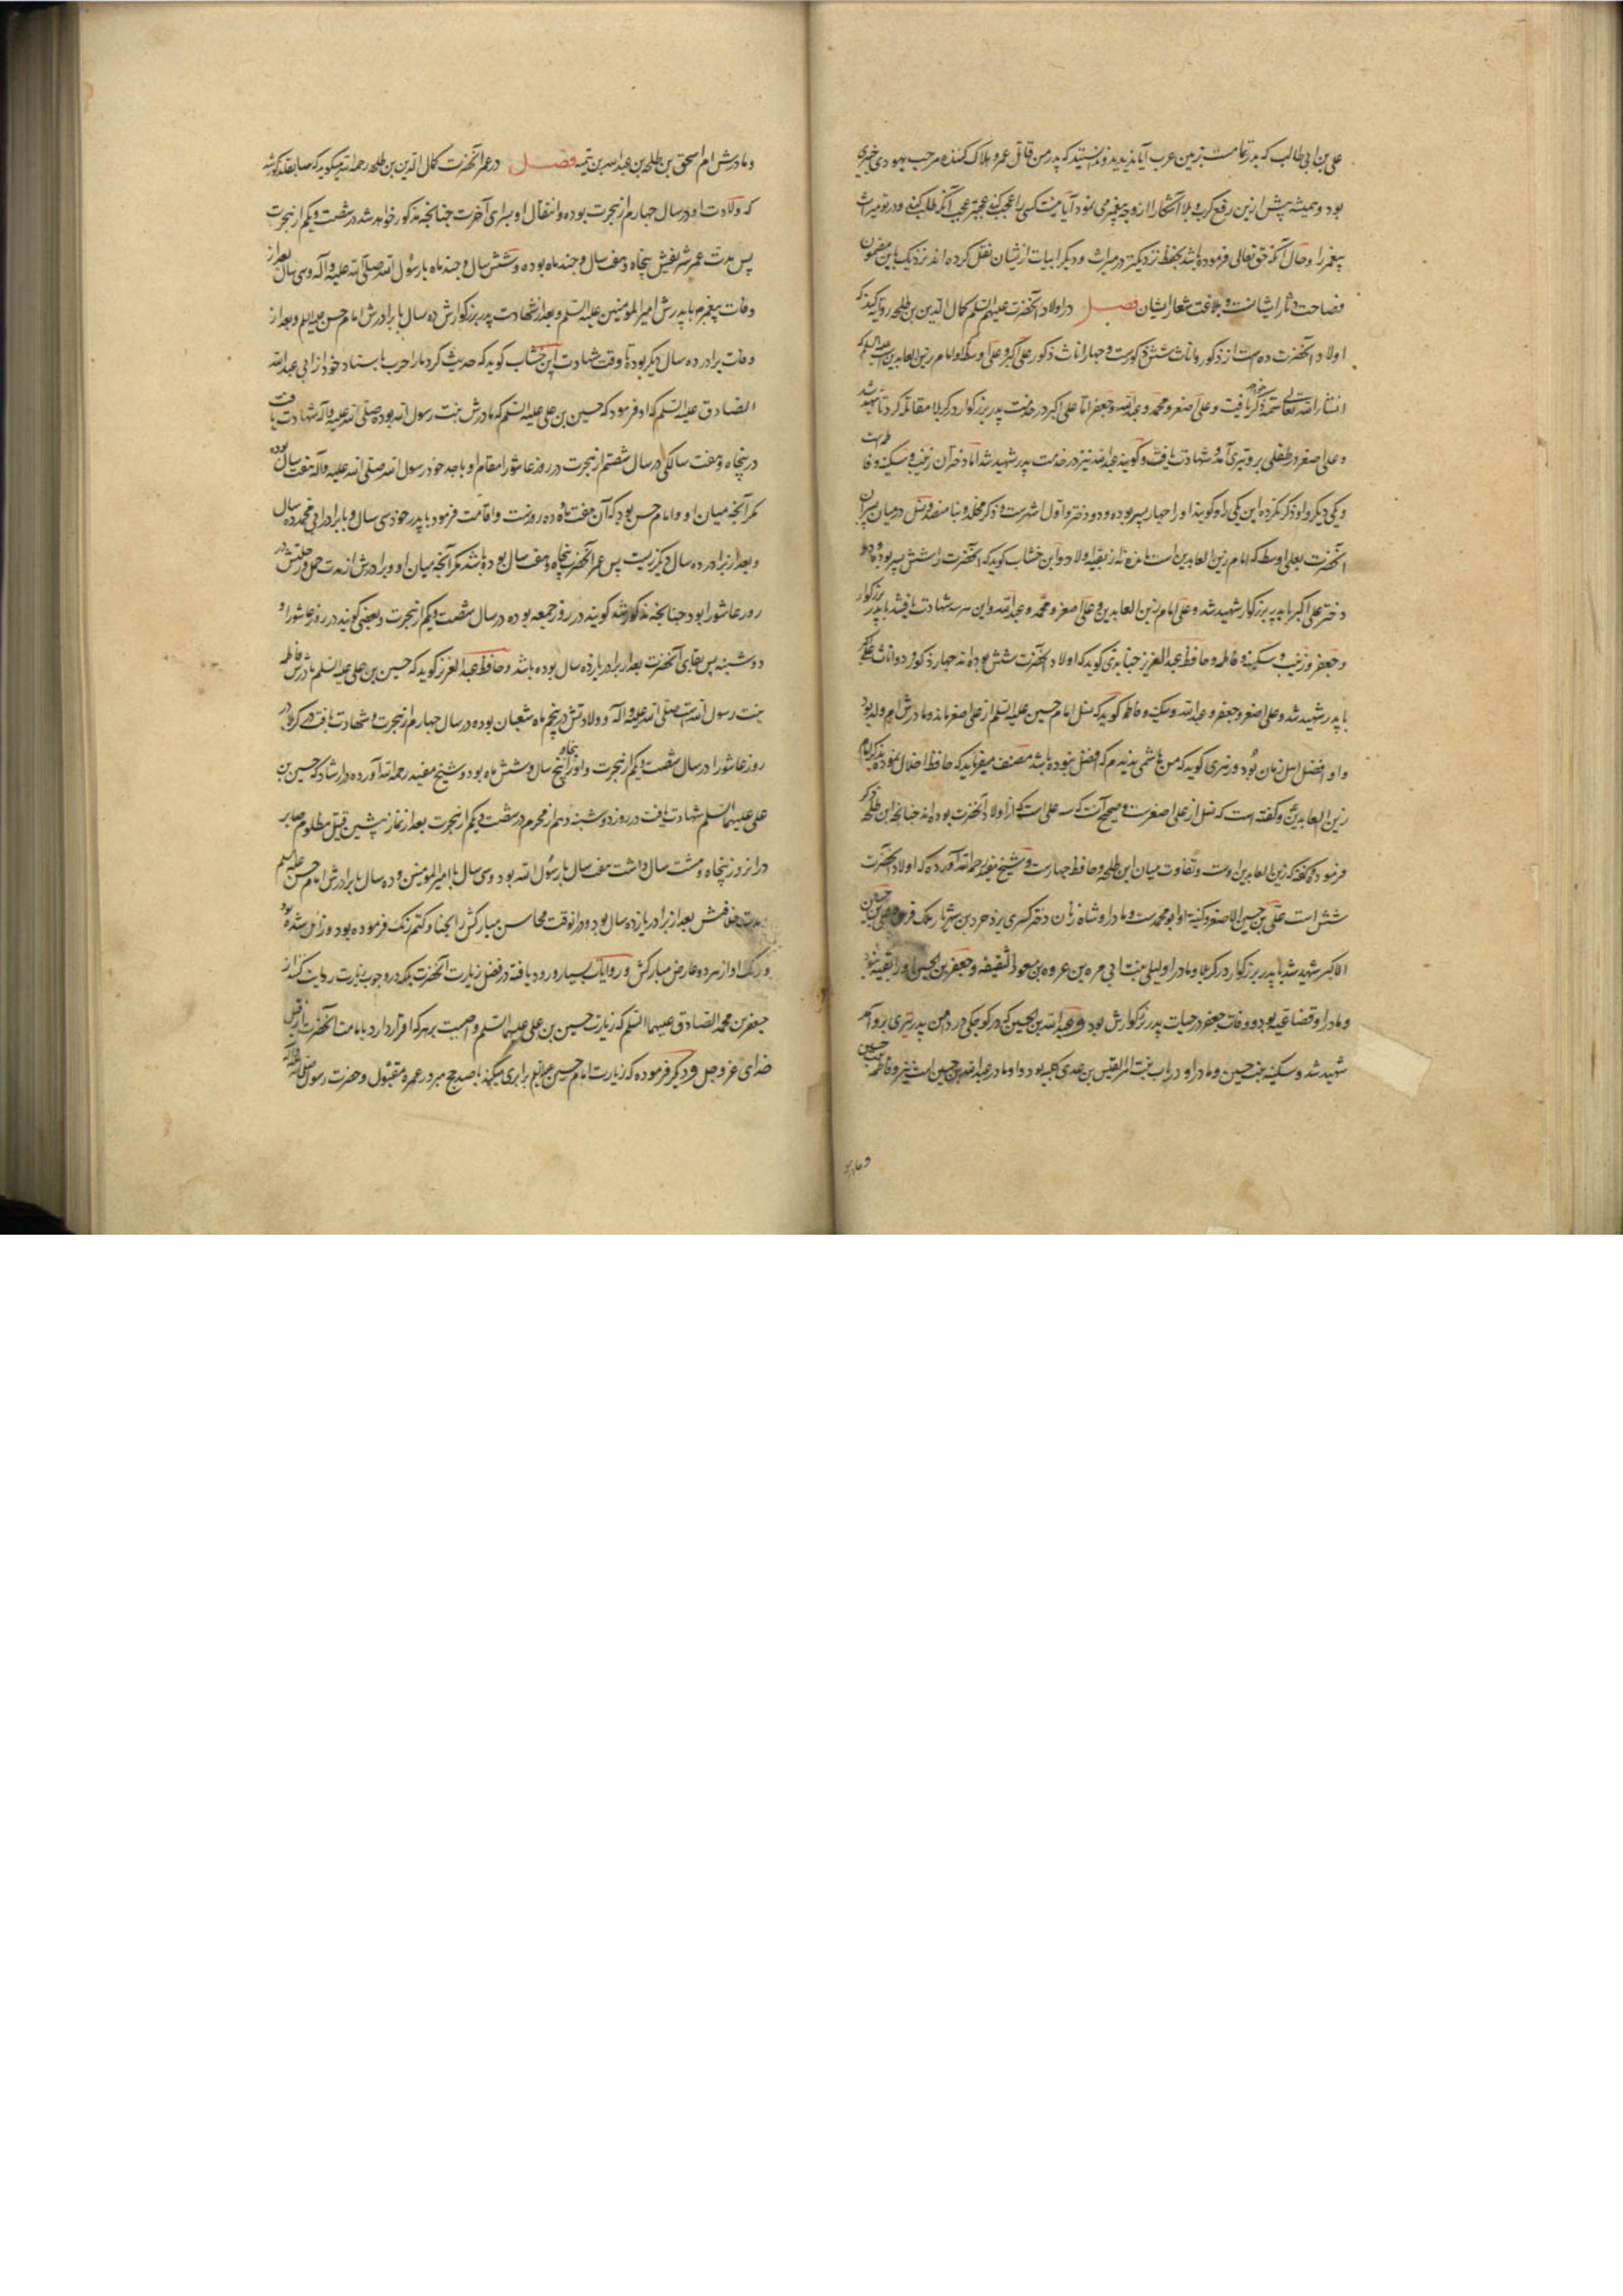 علی بن ابی طالب که بدرستی زمین عرب آیا ندیدید و ندانستید که پدر من قاتل عمرو هلاک کننده مرحب یهودی خیبری
بود و همیشه پیش ازین رفع کرب و بلا آشکارا از وجه پیغمبر می نمود آیا نیست
پیغمبر را و حال آنکه حق تعالی فرموده باشد بحفظ نزدیکتر در میراث و دیگر ابیات ازیشان نقل کرده اند نزدیک باین مضمون
فصاحت دثار ایشانست و بلاغت شعار ایشان فصل در اولاد آنحضرت علیهم السلم کمال الدین بن طلحه روایت کند که
اولاد آنحضرت ده است از ذکور و اناث شش ذکورست و چهار اناث ذکور علی اکبر و علی اوسط و او امام زین العابدین علیه السلم که
انشاء الله تعالی تتمه ذکر خواهد یافت و علی اصغر و محمد و عبدالله و جعفر اما علی اکبر در خدمت پدر بزرگوار در کربلا مقاتله کرد تا شهید شد
و علی اصغر در طفلی برو تیری آمد و شهادت یافت و گویند عبدالله نیز در خدمت پدر شهید شد اما دختران زینب و سکینه و فاطمه است
و یکی دیگر و او ذکر نکرده این یکی را و گویند او را چهار پسر بوده و دو دختر و اول اشهرست و ذکر مخلد و ثنا منضد و نسل در میان پسران
آنحضرت بعلی اوسط که امام زین العابدین است مانده نه از بقیه اولاد و ابن خشاب گوید که آنحضرت را شش پسر بوده و دو
دختر علی اکبر با پدر بزرگوار شهید شد و علی امام زین العابدین و علی اصغر و محمد و عبدالله و این سه شهادت یافتند با پدر بزرگوار
و جعفر و زینب و سکینه و فاطمه و حافظ عبدالعزیز جنابذی گوید که اولاد آنحضرت شش بوده اند چهار ذکور و دو اناث علی اکبر
با پدر شهید شد و علی اصغر و جعفر و عبدالله و سکینه و فاطمه گوید که نسل امام حسین علیه السلم از علی اصغر ماند و مادرش ام ولد بود
و او افضل اهل زمان بود و زهری گوید که من هاشمی ندیدم که افضل ازو بوده باشد مصنف میفرماید که حافظ اخلال نموده بذکر امام
زین العابدین و گفته است که نسل از علی اصغرست و صحیح آنست که سه علی است که از اولاد آنحضرت بوده اند چنانچه ابن طلحه ذکر
فرموده و گفته که زین العابدین اوست و تفاوت میان ابن طلحه و حافظ چهارست و شیخ مفید رحمه الله آورده که اولاد آنحضرت
شش است علی بن حسین الاصغر و کنیه او ابو محمدست و مادر او شاه زنان دختر کسری یزدجرد بن شهریار ملک فرس و علی بن حسین
الاکبر شهید شد با پدر بزرگوار در کربلا و مادر او لیلی بنت ابی مره بن عروه بن مسعود الثقفیه و جعفر بن الحسین او را بقیه نبود
و مادر او قضاعیه بود و وفات جعفر در حیات پدر بزرگوارش بود و عبدالله بن الحسین که در کوچکی در دامن پدر تیری برو آمد
شهید شد و سکینه بنت حسین و مادر او رباب بنت امرالقیس بن عدی کلبیه بود و او مادر عبدالله بن حسین است نیز و فاطمه بنت حسین
و مادرش
و مادرش ام اسحق بن طلحه بن عبدالله بن تیمیه فصل در عمر آنحضرت کمال الدین بن طلحه رحمه الله میگوید که سابقا مذکور شد
که ولادت او در سال چهارم از هجرت بوده و انتقال او بسرای آخرت چنانچه مذکور خواهد شد در شصت و یکم از هجرت
پس مدت عمر شریفش پنجاه و هفت سال و چند ماه بوده و شش سال و چند ماه با رسول الله صلی الله علیه و آله و سی سال بعد از
وفات پیغمبر با پدرش امیر المؤمنین علیه السلم و بعد از شهادت پدر بزرگوارش ده سال با برادرش امام حسن علیه السلم و بعد از
وفات برادر ده سال دیگر بود تا وقت شهادت ابن خشاب گوید که حدیث کرد ما را حرب باسناد خود از ابی عبدالله
الصادق علیه السلم که او فرمود که حسین بن علی علیه السلم که مادرش بنت رسول الله بود صلی الله علیه و آله شهادت یافت
در پنجاه و هفت سالگی در سال شصتم از هجرت در روز عاشورا مقام او با جد خود رسول الله صلی الله علیه و آله هفت سال بوده
مگر آنچه میان او و امام حسن بود که آن هفت ماه و ده روزست و اقامت فرمود با پدر خود سی سال و با برادر ابی محمد ده سال
و بعد از برادر ده سال دیگر زیست پس عمر آنحضرت پنجاه و هفت سال بوده باشد مگر آنچه میان او و برادرش از مدت حمل و رحلتش در
روز عاشورا بود چنانچه مذکور شد گویند در روز جمعه بوده در سال شصت و یکم از هجرت و بعضی گویند در روز عاشورا و
دوشنبه پس بقای آنحضرت بعد از برادر یازده سال بوده باشد و حافظ عبدالعزیز گوید که حسین بن علی علیه السلم مادرش فاطمه
بنت رسول الله است صلی الله علیه و آله و ولادتش در پنجم ماه شعبان بوده در سال چهارم از هجرت و شهادت یافت در کربلا در
روز عاشورا در سال شصت و یکم از هجرت و او را پنجاه و پنج سال و شش ماه بود و شیخ مفید رحمه الله آورده در ارشاد که حسین بن
علی علیهما السلم شهادت یافت در روز دوشنبه دهم از محرم در شصت و یکم از هجرت بعد از نماز پیشین قتیل مظلوم صابر
در آنروز پنجاه و هشت سال داشت هفت سال با رسول الله بود و سی سال با امیر المؤمنین و ده سال با برادرش امام حسن علیه السلم
مدت خلافتش بعد از برادر یازده سال بود و در آنوقت محاسن مبارکش را بحنا و کتم رنگ فرموده بود و زایل شده بود
و رنگ او از هر دو عارض مبارکش و روایات بسیار ورود یافته در فضل زیارت آنحضرت بلکه در وجوب زیارت روایت کنند از
جعفر بن محمد الصادق علیهما السلم که زیارت حسین بن علی علیهما السلم واجبست بر هر که اقرار دارد بامامت آنحضرت از قبل
خدای عز و جل و دیگر فرموده که زیارت امام حسین علیه السلم برابری میکند با صد حج مبرور عمره مقبول و حضرت رسول صلی الله علیه و آله